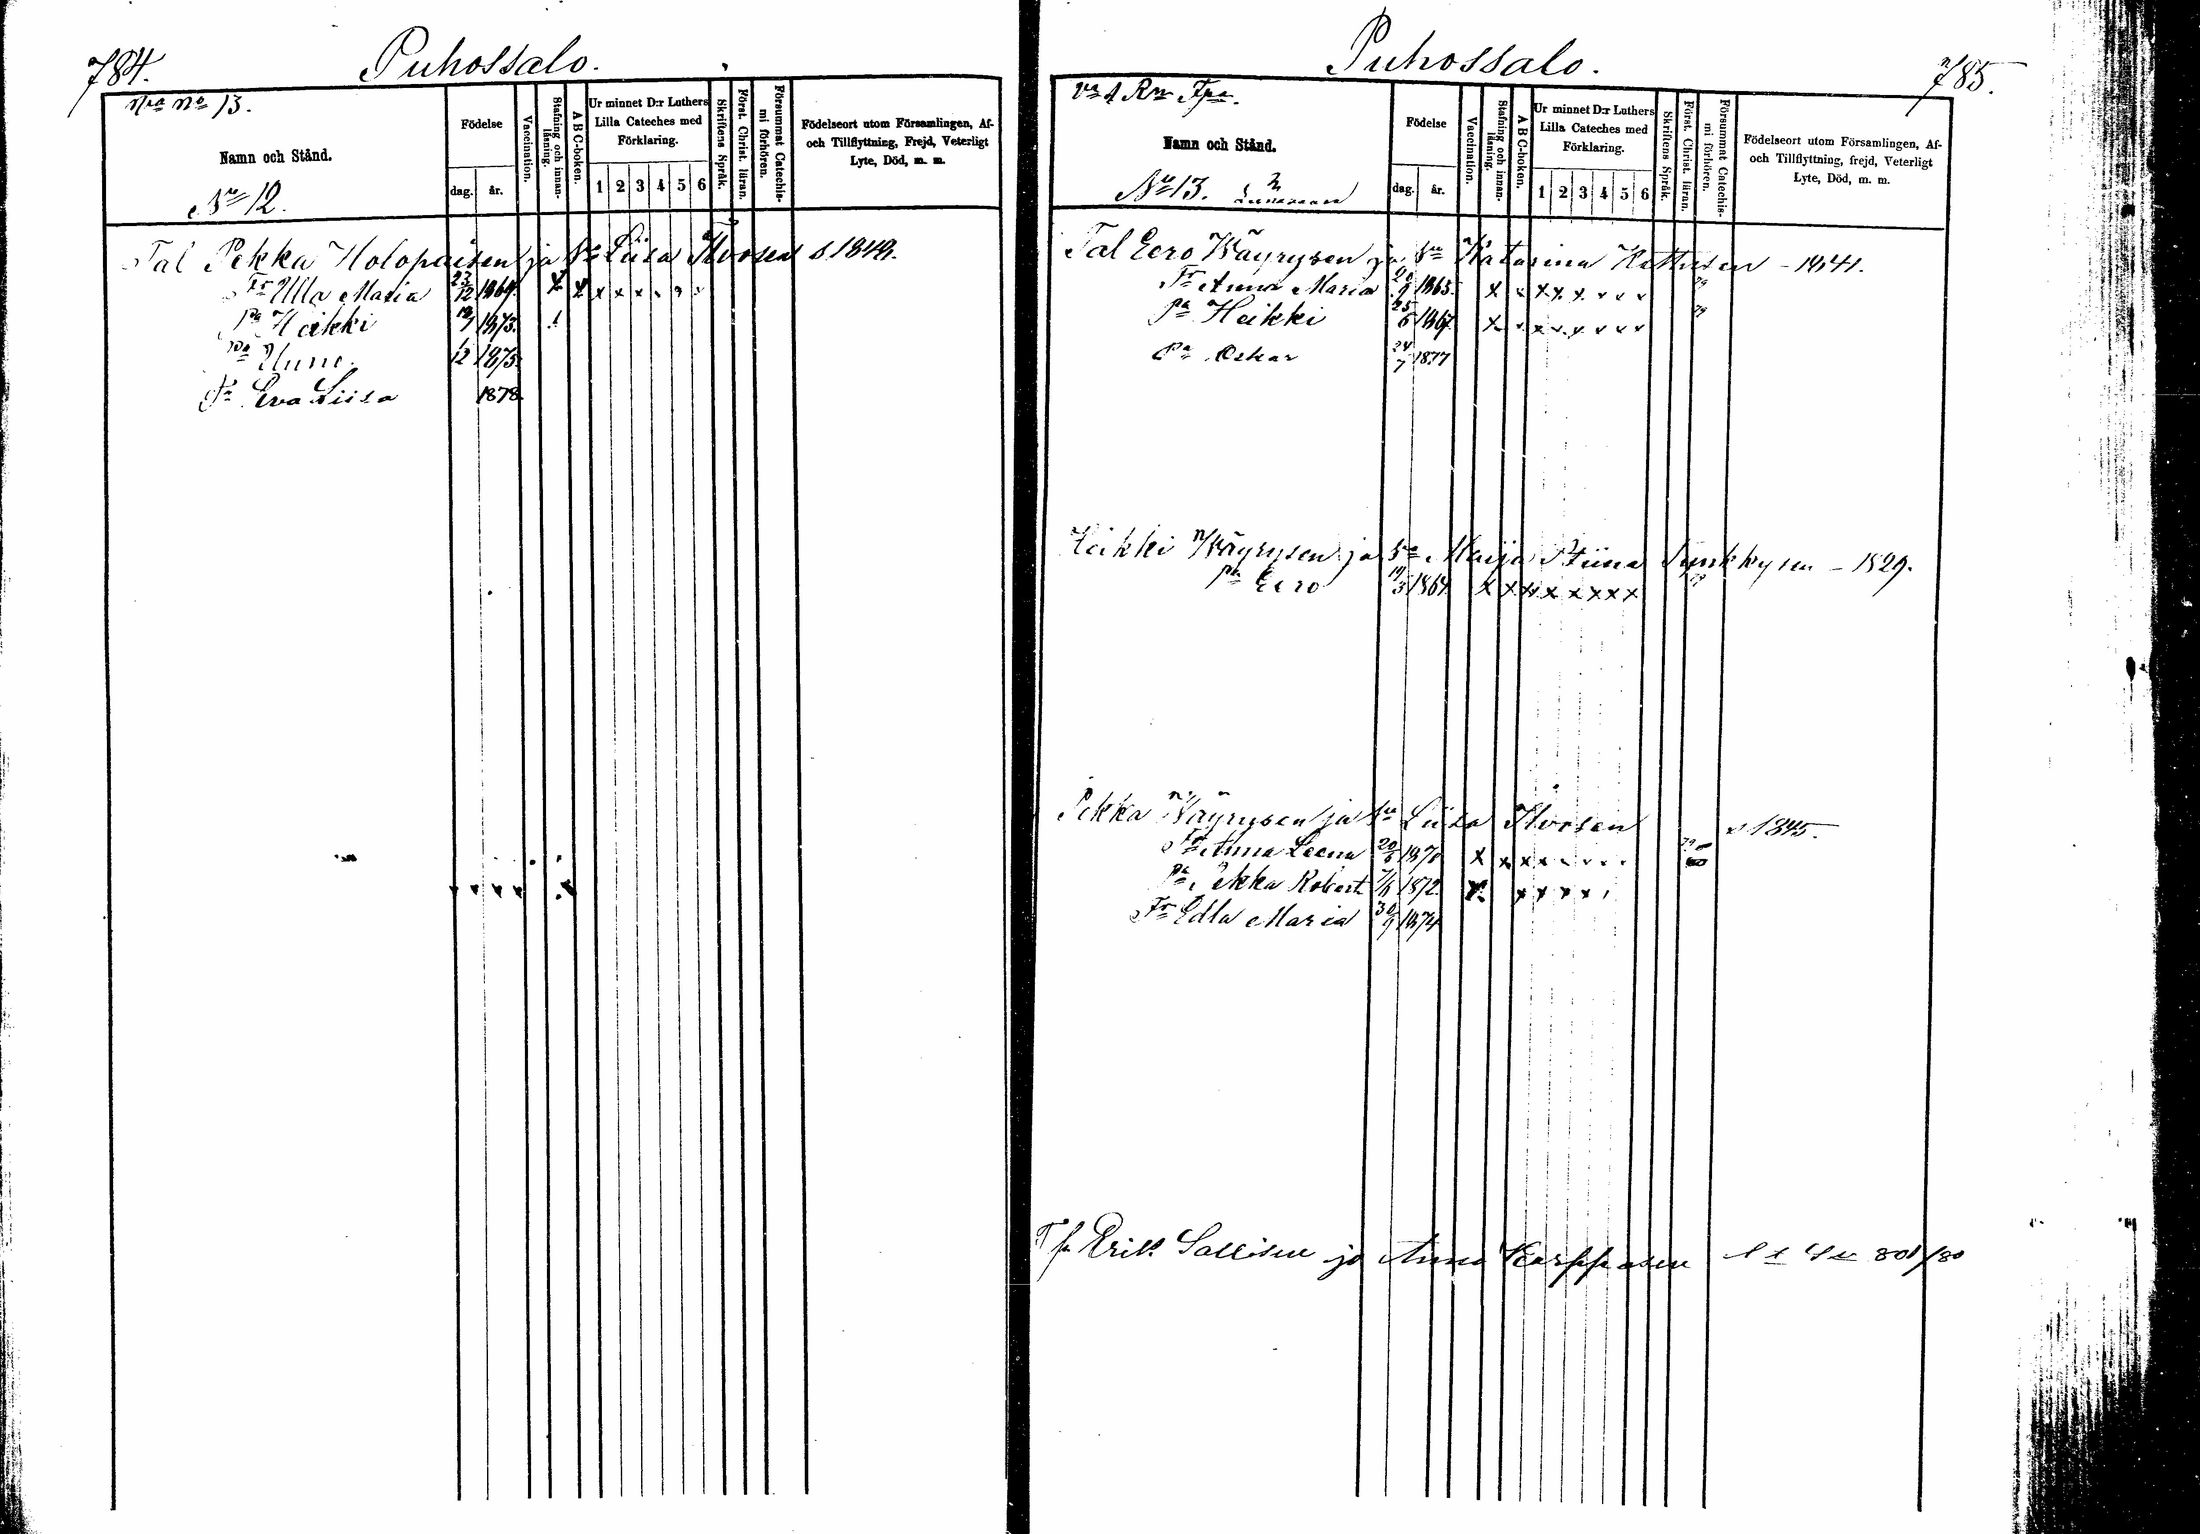 784.
Puhossalo.
No 13.
Namn och Stånd.
No 12.
Födelse
dag. år.
Vaccination.
Stafning och innan-
läsning.
A B C-boken.
Ur minnet D:r Luthers
Lilla Cateches med
Förklaring.
1 2 3 4 5 6
Skriftens Språk.
Först. Christ. läran.
Försummat Catechis-
mi förhören.
Födelseort utom Församlingen, Af-
och Tillflyttning, Frejd, Veterligt
Lyte, Död, m. m.
Tal Pekka Holopaisen ja Liisa Ihvosen s. 1849.
Tr Ulla Maria 23/12 1869.
Pa Heikki 1873.
Pa Uuno. 1/12 1875.
Tr Eva Liisa 1878
Puhossalo.
785.
Namn och Stånd.
No 13.
Födelse
dag. år.
Vaccination.
Stafning och innan-
läsning.
A B C-boken.
Ur minnet D:r Luthers
Lilla Cateches med
Förklaring.
1 2 3 4 5 6
Skriftens Språk.
Först. Christ. läran.
Försummat Catechis-
mi förhören.
Födelseort utom Församlingen, Af-
och Tillflyttning, frejd, Veterligt
Lyte, Död, m. m.
Tal Eero Wäyrysen ja Katarina - 1841.
Tr Anna Maria 1865.
Pa Heikki 25/6 1867.
Pa Oskar 24/7 1877
Heikki Wäyrysen ja Maija Stiina Synkkysen - 1829.
Pa Eero 1864
Pekka Wäyrysen ja Liisa Ihvosen s 1845.
Tr Anna Leena 1870
Pa Pekka Robert 1872
Tr Edla Maria 30/9 1874
Erik Sallisen ja Anna Karppasen 801/80